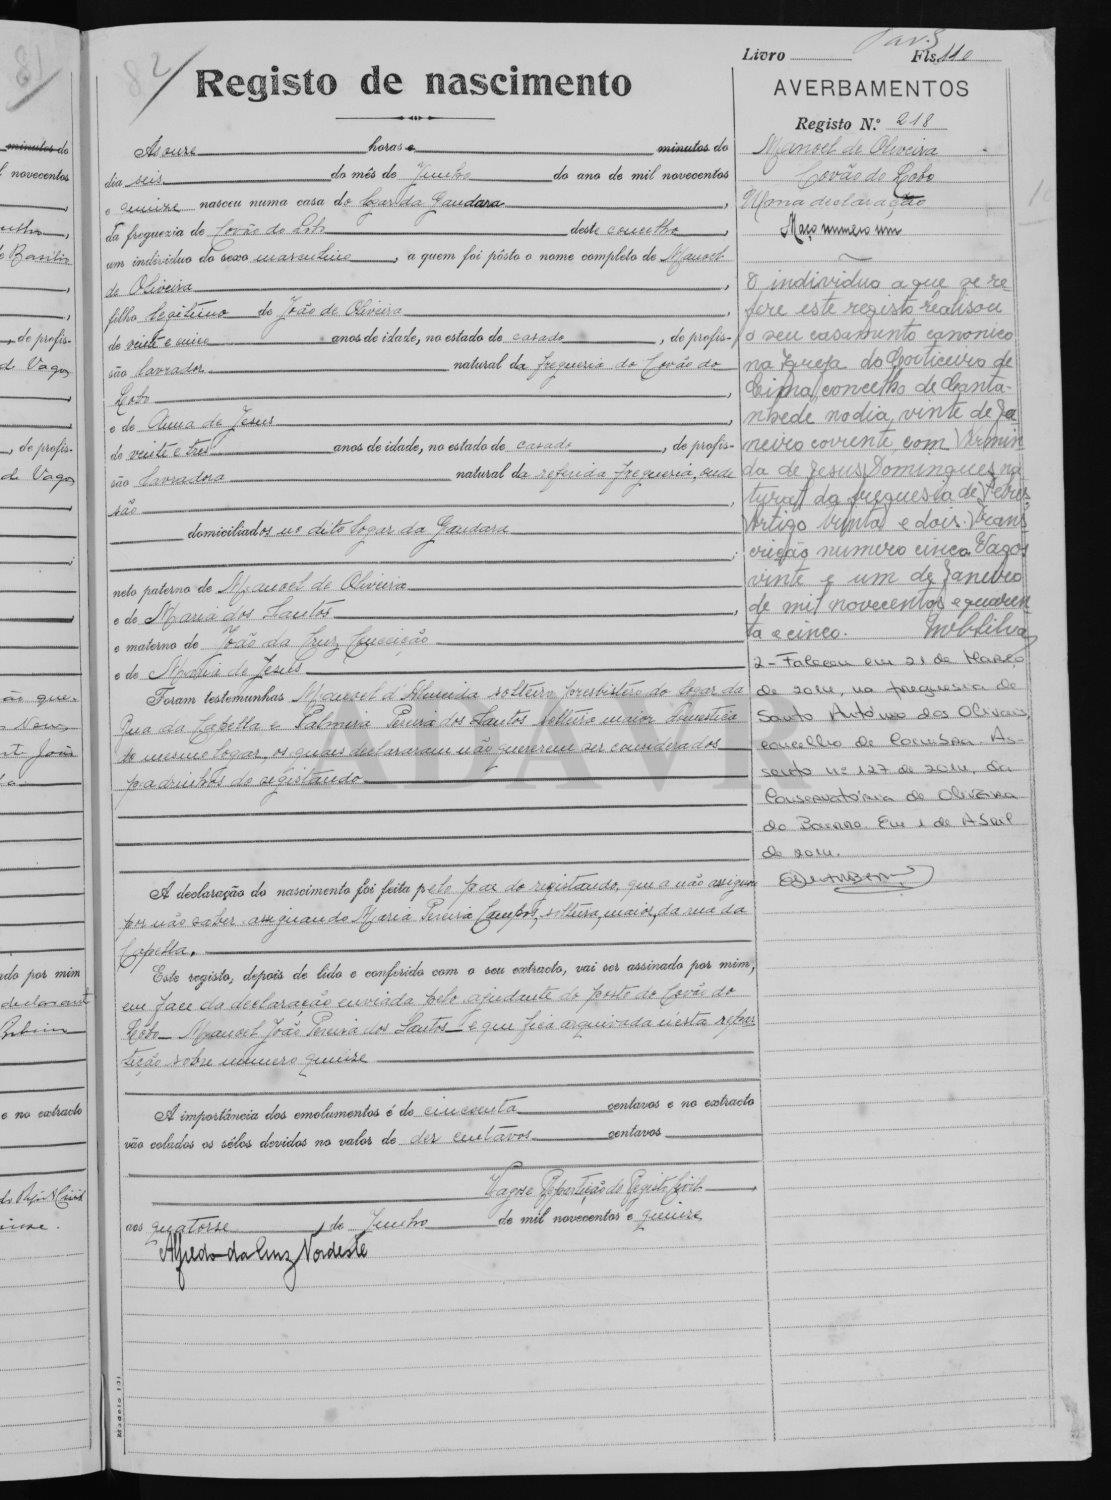 82
Registo de nascimento
Ás onze horas e minutos do
dia seis do mês de Junho do ano de mil novecentos
e quinze nasceu numa casa do logar da Gandara,
da freguezia de Covão do Lobo deste concelho,
um individuo do sexo masculino, a quem foi pôsto o nome completo de Manoel
de Oliveira,
filho legitimo de João de Oliveira,
de vinte e cinco anos de idade, no estado de casado, de profis-
são lavrador natural da freguesia do Covão do
Lobo,
e de Anna de Jesus,
de vinte e tres anos de idade, no estado de casada, de profis-
são lavradora natural da referida freguesia, onde
são,
domiciliados no dito logar da Gandara
;
neto paterno de Manoel de Oliveira
e de Maria dos Santos,
e materno de João da Cruz
e de Maria de Jesus
Foram testemunhas Manoel d'Almeida solteiro, presbitero do logar da
Rua da Capella e Palmira Pereira dos Santos solteira maior domestica
do mesmo logar, os quaes declararam não quererem ser considerados
padrinhos do registando
A declaração do nascimento foi feita pelo pae do registando, que a não assignou
por não saber assignando Maria Pereira Campos, solteira, maior, da rua da
Capella.
Este registo, depois de lido e conferido com o seu extracto, vai ser assinado por mim,
em face da declaração enviada pelo ajudante do posto do Covão do
Lobo – Manoel João Pereira dos Santos – e que fica arquivada n'esta repar
tição sobre numero quinze
A importância dos emolumentos é de cincoenta centavos e no extracto
vão colados os sêlos devidos no valor de dez centavos centavos
Vagos e Repartição do Registo Civil,
aos quatorse de Junho de mil novecentos e quinze
Alfredo da Cruz Nordeste
Modelo 131
Livro Fls. 110
AVERBAMENTOS
Registo N.º 218
Manoel de Oliveira
Covão do Lobo
Uma declaração
Maço numero um
O individuo a que se re
fere este registo realisou
o seu casamento canonico
na Igreja do Corticeiro de
Cima, concelho de Canta-
nhede no dia vinte de Ja
neiro corrente com Hermin
da de Jesus Domingues, na
tural da freguesia de Febres.
Artigo trinta e dois. Trans
crição numero cinco. Vagos
vinte e um de Janeiro
de mil novecentos e quaren
ta e cinco.
2 - Faleceu em 21 de Março
de 2014, na freguesia de
Santo António dos Olivais,
concelho de Coimbra. As-
sento nº 127 de 2014, da
Conservatória de Oliveira
do Bairro. Em 1 de Abril
de 2014.
ADAVR
81
minutos do
novecentos
de profis-
de Vagos
de profis-
de Vagos
por mim
e no extracto